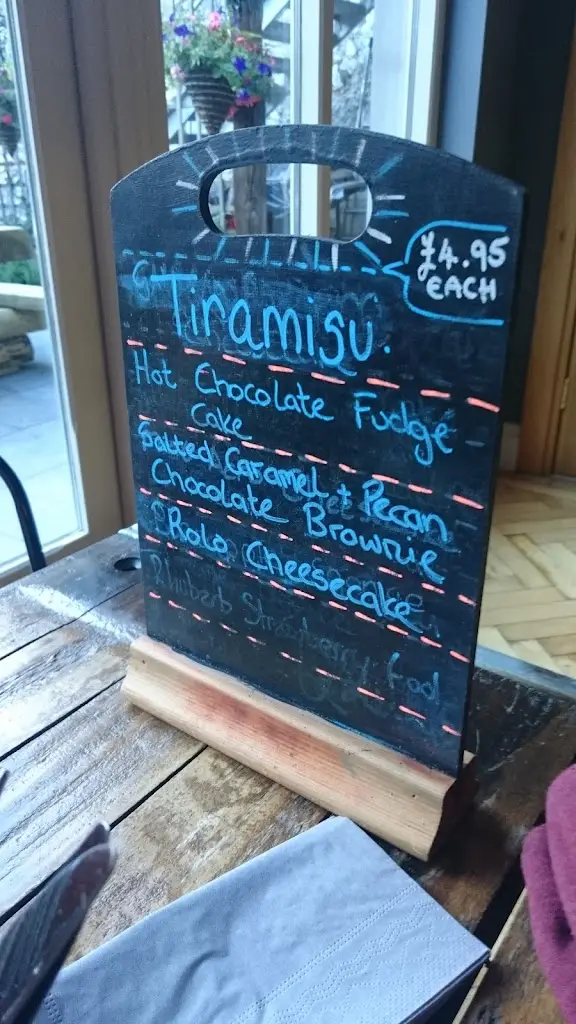 £4.95
EACH
Tiramisu.
Hot Chocolate Fudge
Cake
Salted Caramel + Pecan
Chocolate Brownie
Rolo Cheesecake
Rhubarb Strawberry Fool